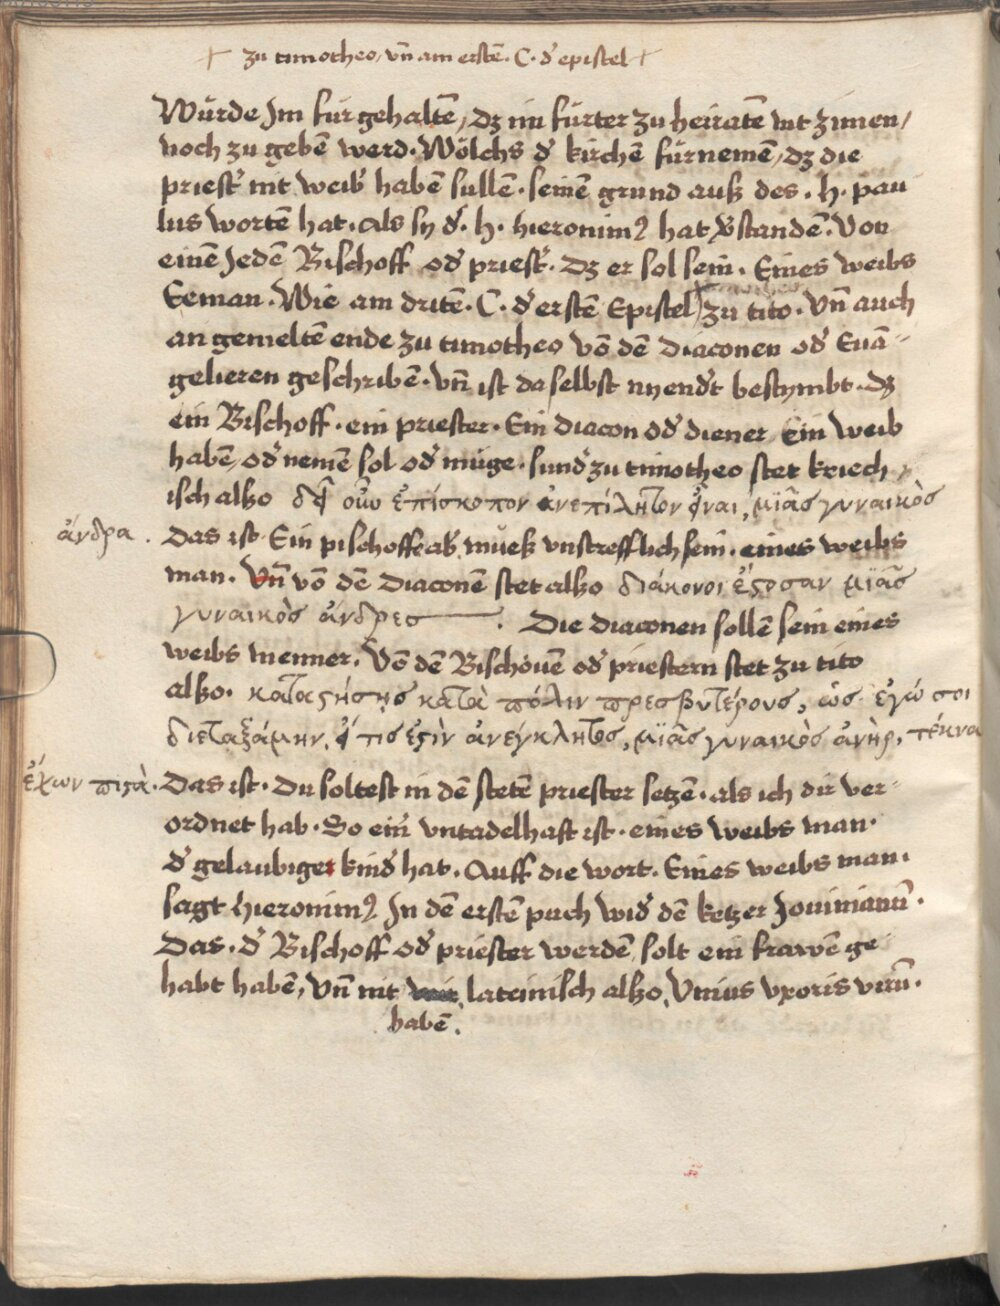 + zu timotheo, vn̄ am erstē. C. d' epistel +
Würde Jm für gehaltē, dz im fürter zu heiratē nit zimen,
noch zu gebē werd. Wölchs d' kirchē fürnemē, dz die
priest' nit weib' habē sullē. seinē grund auß des. h. pau
lus wortē hat. als sy d'. h. hieronim9 hat v'standē. Von
einē Jedē Bischoff od' priest'. Dz er sol sein. Eines weibs
Eeman. Wie am dritē. C. d' erstē Epistel + zu tito. Vn̄ auch
an gemeltē ende zu timotheo vō dē Diaconen od' Euā-
gelieren geschribē. vn̄ ist daselbst nyend't bestymbt. dz
ein Bischoff. ein priester. Ein diacon od' diener Ein weib
habē, od' nemē sol od' müge. sund' zu timotheo stet kriech,
isch alßo δεῖ οὖν ἐπίσκοπον ἀνεπίληπτον εἶναι, μιᾶς γυναικὸς
ἄνδρα. Das ist Ein pischoffe ab', mueß vnstrefflich sein. eines weibs
man. Vn̄ vō dē Diaconē stet alßo διάκονοι ἔστωσαν μιᾶς
γυναικὸς ἄνδρες. Die diaconen sollē sein eines
weibs menner. Vō dē Bischouē od' priestern stet zu tito
alßo. καταστήσῃς κατὰ πόλιν πρεσβυτέρους, ὡς ἐγώ σοι
διεταξάμην, εἴ τις ἐστὶν ἀνέγκλητος, μιᾶς γυναικὸς ἀνὴρ, τέκνα
ἔχων πιστὰ. Das ist. Du soltest in dē stetē priester setzē. als ich dir ver-
ordnet hab. So ein' vntadelhaft ist. eines weibs man.
d' gelaubiger kind' hat. Auff die wort. Eines weibs man.
sagt hieronim9 Jn dē erstē puch wid' dē ketzer Jouinianū.
Das. d' Bischoff od' priester werdē, solt ein frawē ge
habt habē, Vn̄ nit lateinisch alßo, Vnius vxoris virū.
habē.